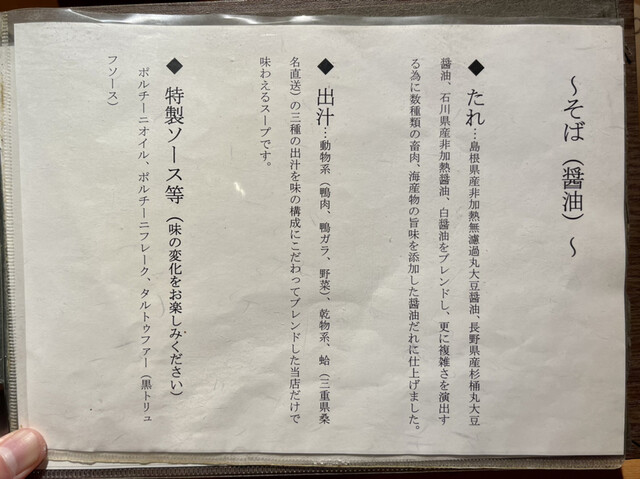 ～そば（醤油）～
◆たれ…島根県産非加熱無濾過丸大豆醤油、長野県産杉桶丸大豆
醤油、石川県産非加熱醤油、白醤油をブレンドし、更に複雑さを演出す
る為に数種類の畜肉、海産物の旨味を添加した醤油だれに仕上げました。
◆出汁…動物系（鴨肉、鴨ガラ、野菜）、乾物系、蛤（三重県桑
名直送）の三種の出汁を味の構成にこだわってブレンドした当店だけで
味わえるスープです。
◆特製ソース等（味の変化をお楽しみください）
ポルチーニオイル、ポルチーニフレーク、タルトゥファー（黒トリュ
フソース）